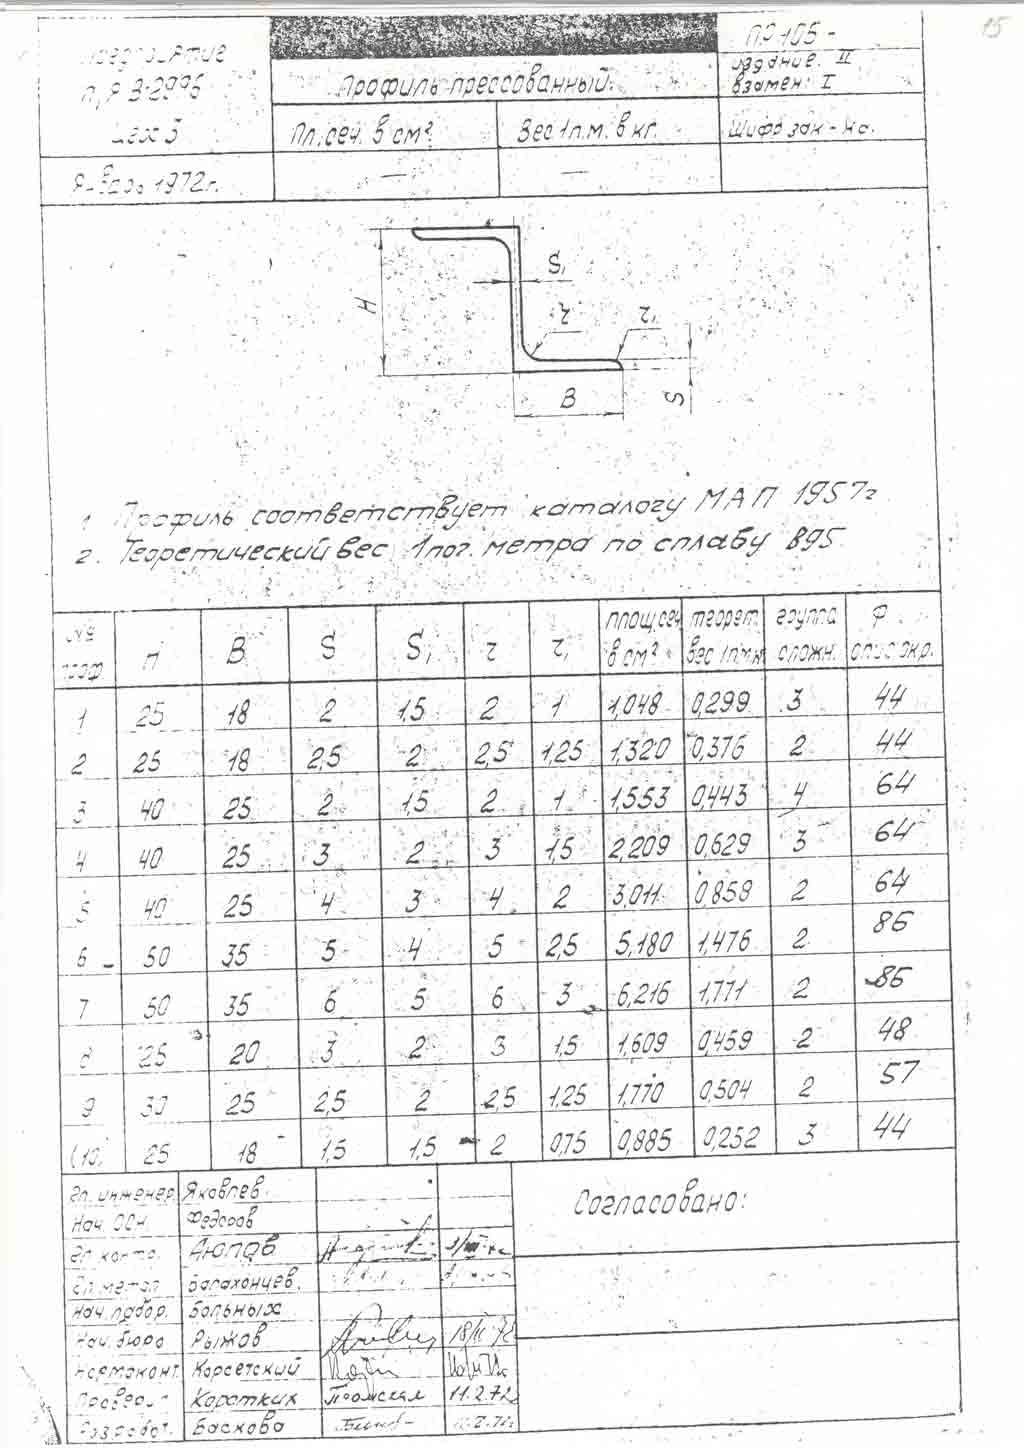 15
Предприятие
п/я В-2996
цех 5
Январь 1972г.
Профиль прессованный.
Пл. сеч. в см²
Вес 1п.м. в кг.
—
—
ПР 105 -
издание: II
взамен: I
Шифр зак-ка.
H
S₁
r
r₁
B
S
1. Профиль соответствует каталогу МАП 1957г
2. Теоретический вес 1 пог. метра по сплаву В95.
№ проф. H B S S₁ r r₁ площ. сеч в см² теорет. вес 1п/м группа сложн. Ф опис окр.
1 25 18 2 1,5 2 1 1,048 0,299 3 44
2 25 18 2,5 2 2,5 1,25 1,320 0,376 2 44
3 40 25 2 1,5 2 1 1,553 0,443 4 64
4 40 25 3 2 3 1,5 2,209 0,629 3 64
5 40 25 4 3 4 2 3,011 0,858 2 64
6 50 35 5 4 5 2,5 5,180 1,476 2 86
7 50 35 6 5 6 3 6,216 1,771 2 86
8 25 20 3 2 3 1,5 1,609 0,459 2 48
9 30 25 2,5 2 2,5 1,25 1,770 0,504 2 57
(10) 25 18 1,5 1,5 2 0,75 0,885 0,252 3 44
Гл. инженер. Яковлев.
Нач. ОСН. Федоров
Гл. контр. Аюпов
Гл. метал. Балахонцев.
Нач. лабор. Больных
Нач. бюро Рыжов
Нормоконт. Корсетский
Провер. Коротких 11.2.72
Разработ. Баскова
Согласовано: